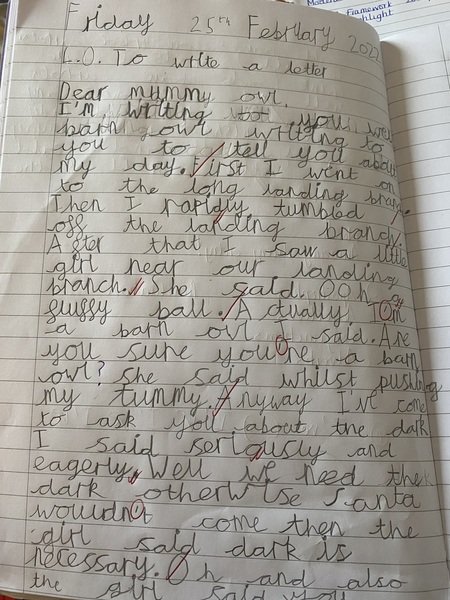 Friday 25th February 2022
L.O. To write a letter
Dear mummy owl.
I'm writing you
barn owl writting to
you to tell you about
my day. First I went on
to the long landing branch.
Then I rapidly tumbled
off the landing branch.
After that I saw a little
girl near our landing
branch. She said. Ooh
fluffy ball. Actually I'm
a barn owl I said. Are
you sure you're a barn
owl? she said whilst pushing
my tummy. Anyway I've come
to ask you about the dark
I said seriously and
eagerly. Well we need the
dark otherwise Santa
wouldn't come then the
girl said dark is
necessary. Oh and also
the girl said you
Framework
highlight